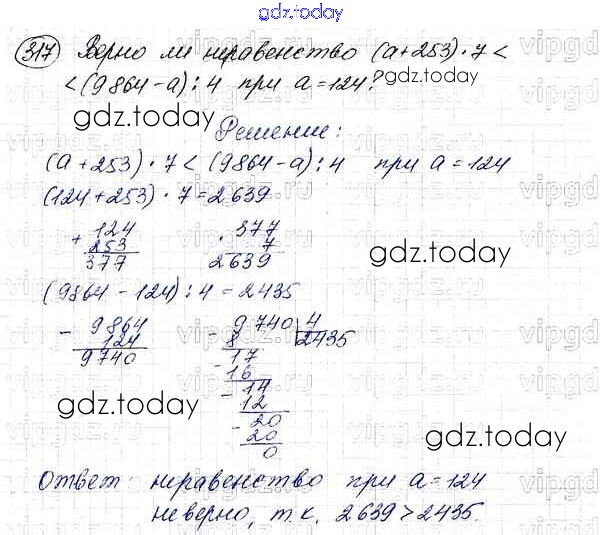 gdz.today
317 Верно ли неравенство (a+253)·7<
<(9864-a):4 при a=124?
gdz.today
gdz.today
Решение:
(a+253)·7<(9864-a):4 при a=124
(124+253)·7=2639
+ 124 · 377
253 7
377 2639
gdz.today
(9864-124):4=2435
- 9864 - 9740 4
124 8 2435
9740 - 17
16
- 14
gdz.today
12
- 20
20
0
gdz.today
Ответ: неравенство при a=124
неверно, т.к. 2639>2435.